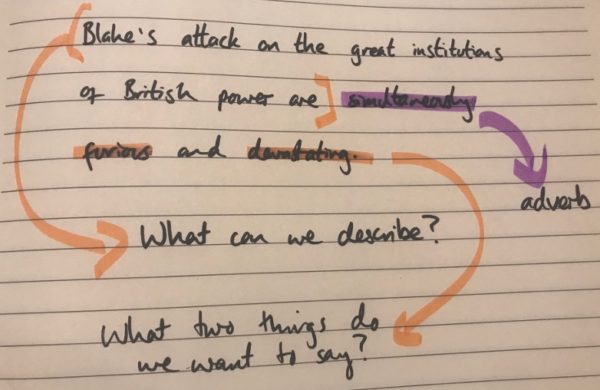 Blake's attack on the great institutions
of British power are simultaneously
furious and devastating.
adverb
What can we describe?
What two things do
we want to say?